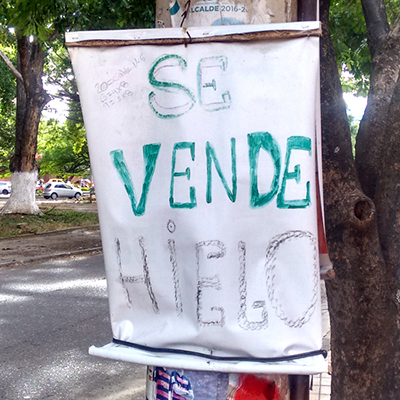 ALCALDE 2016-2
SE
VENDE
HiELO